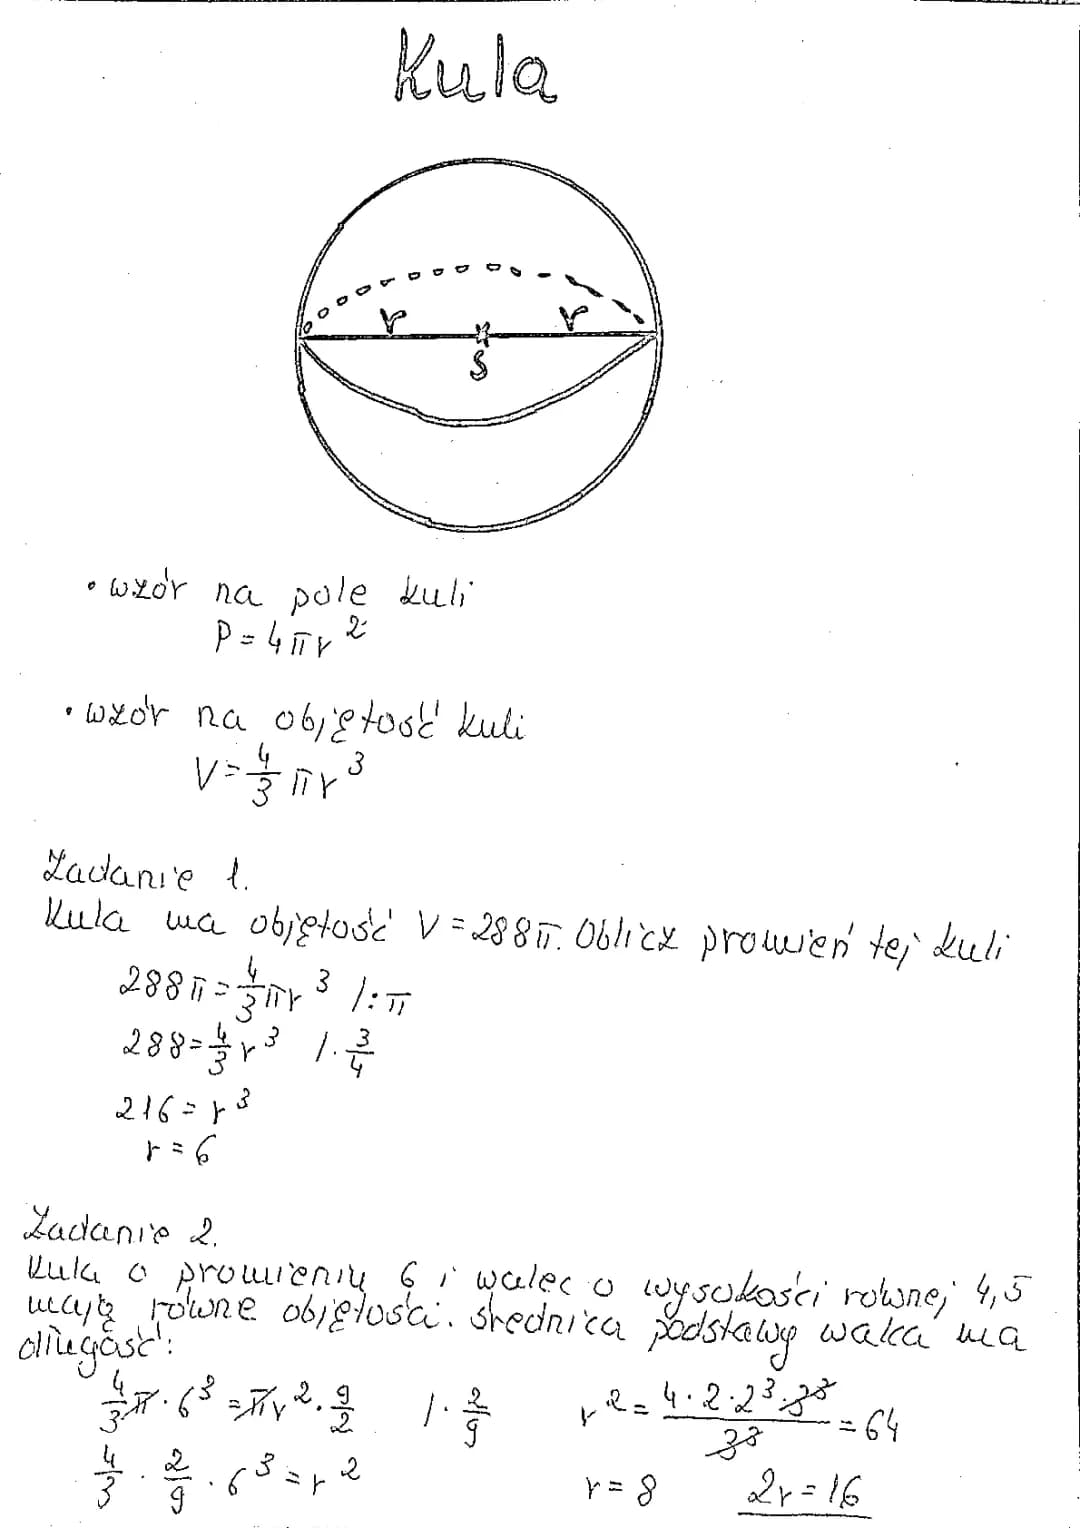 Kula
r r
S
• wzór na pole kuli
P = 4πr²
• wzór na objętość kuli
V = 4/3 πr³
Zadanie 1.
Kula ma objętość V = 288π. Oblicz promień tej kuli
288π = 4/3 πr³ /:π
288 = 4/3 r³ /· 3/4
216 = r³
r = 6
Zadanie 2.
Kula o promieniu 6 i walec o wysokości równej 4,5
mają równe objętości. średnica podstawy walca ma
długość:
4/3 π · 6³ = πr² · 9/2 /· 2/9 r² = 4·2·2³·3³ / 3³ = 64
4/3 · 2/9 · 6³ = r² r = 8 2r = 16